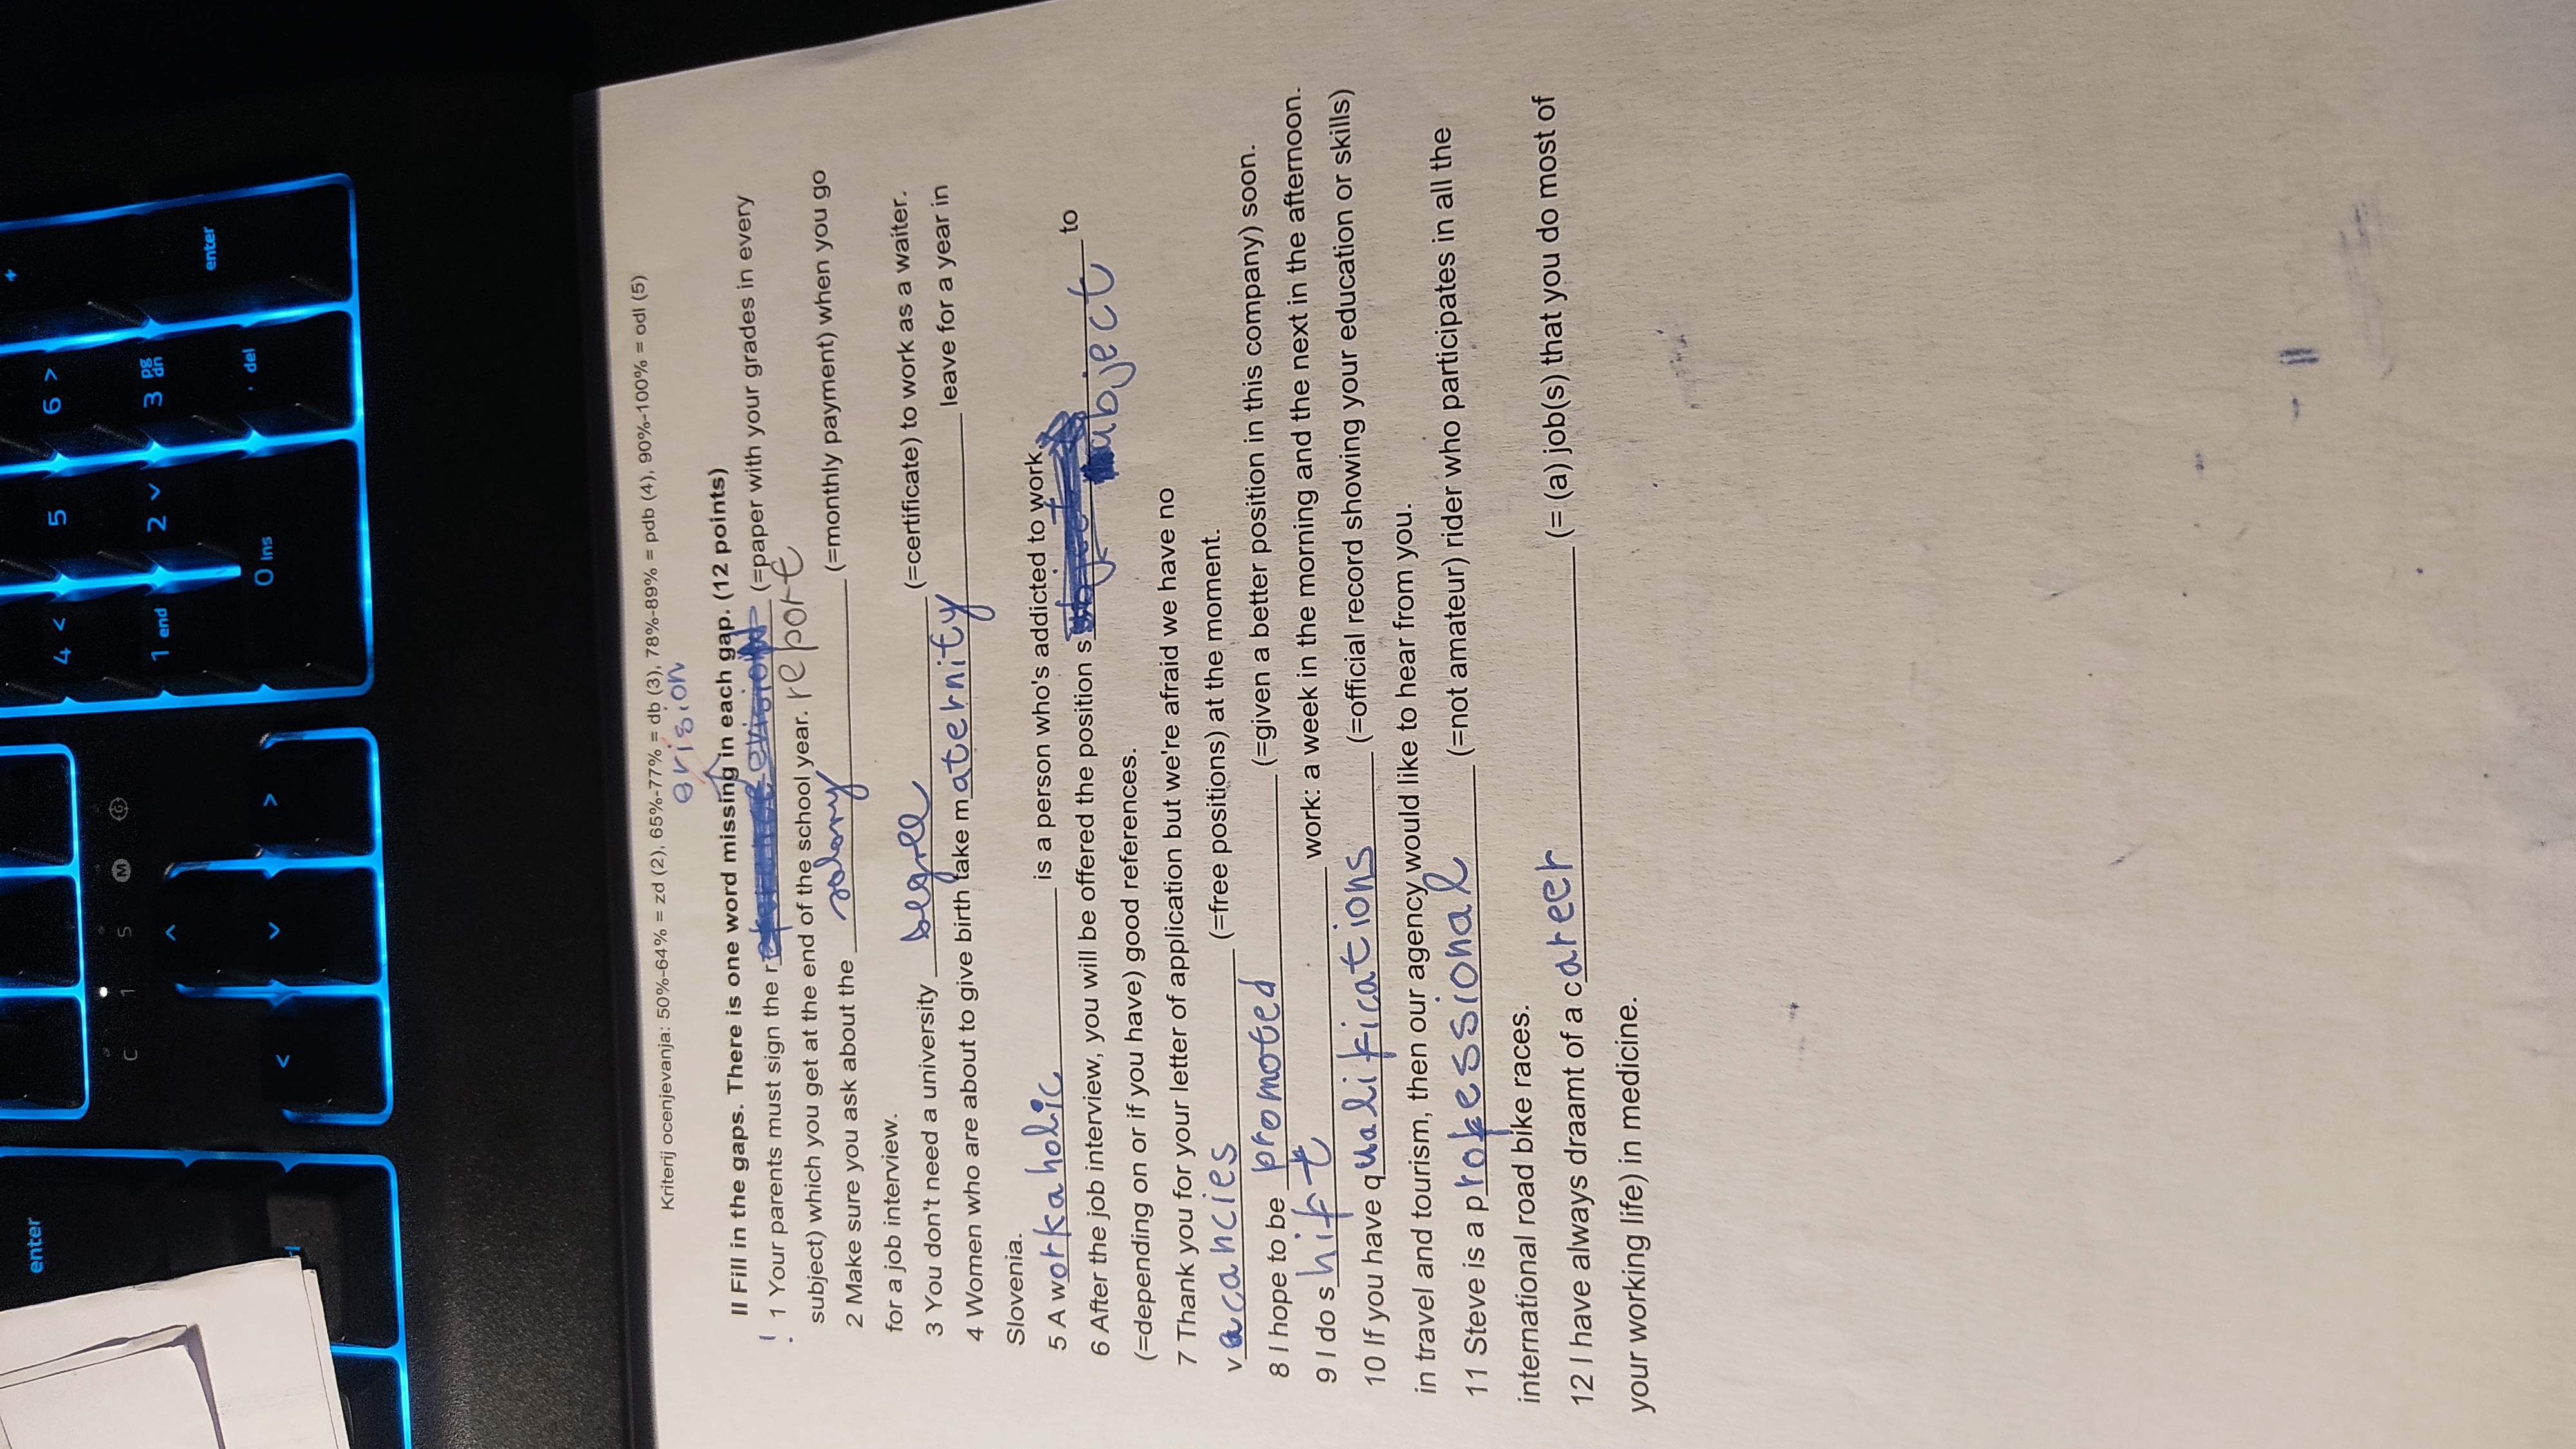 enter
4 < 5 6 > +
C 1 S M G
1 end 2 3 pg dn
enter
< > 0 Ins . del
Kriterij ocenjevanja: 50%-64% = zd (2), 65%-77% = db (3), 78%-89% = pdb (4), 90%-100% = odl (5)
erision
II Fill in the gaps. There is one word missing in each gap. (12 points)
! 1 Your parents must sign the r (=paper with your grades in every
subject) which you get at the end of the school year. report
2 Make sure you ask about the salary (=monthly payment) when you go
for a job interview.
3 You don't need a university degree (=certificate) to work as a waiter.
4 Women who are about to give birth take maternity leave for a year in
Slovenia.
5 A workaholic is a person who's addicted to work.
6 After the job interview, you will be offered the position s ubject to
(=depending on or if you have) good references.
7 Thank you for your letter of application but we're afraid we have no
vacancies (=free positions) at the moment.
8 I hope to be promoted (=given a better position in this company) soon.
9 I do shift work: a week in the morning and the next in the afternoon.
10 If you have qualifications (=official record showing your education or skills)
in travel and tourism, then our agency would like to hear from you.
11 Steve is a professional (=not amateur) rider who participates in all the
international road bike races.
12 I have always draamt of a career (= (a) job(s) that you do most of
your working life) in medicine.